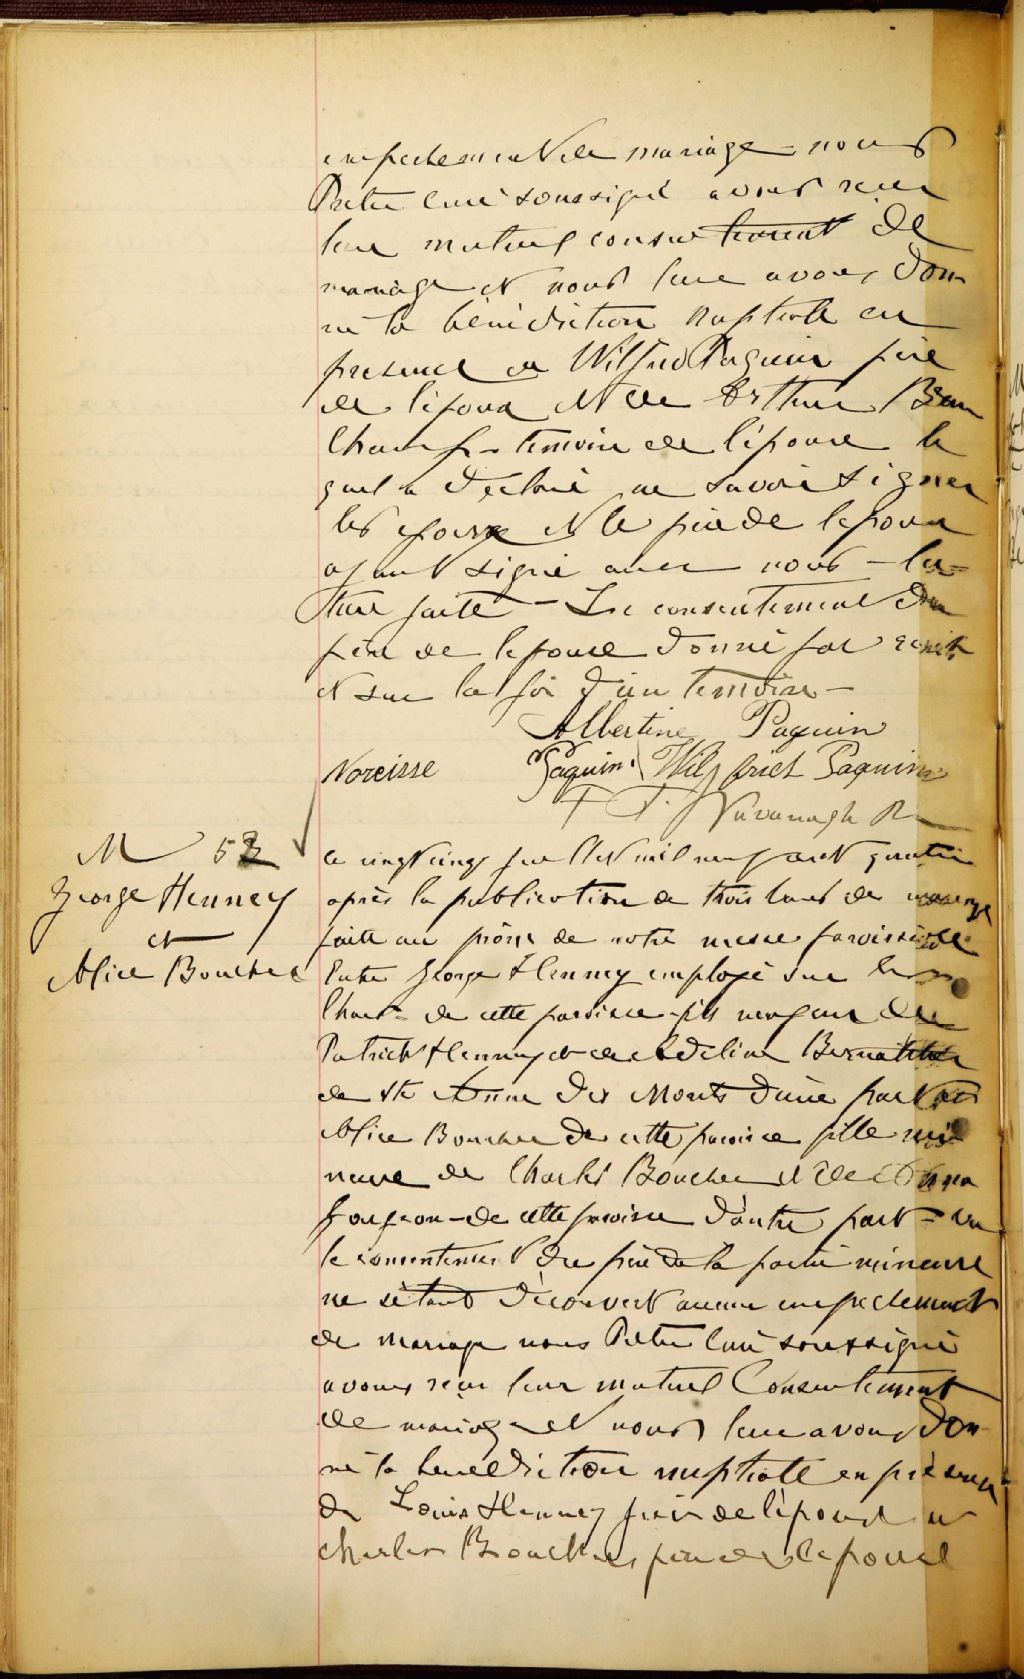 empechement de mariage nous
Pretre Curé soussigné avons recu
leur mutuel consentement de
mariage et nous leur avons don
né la bénédiction nuptiale en
presence de Wilfrid Paquin père
de l'époux et de Arthur Beau
Champ témoin de l'épouse le
quel a déclaré ne savoir signer
les époux et le père de l'époux
ayant signé avec nous - lec-
ture faite - Le consentement du
père de l'épouse donné par écrit
et sur la foi d'un témoin -
Albertine Paquin
Narcisse Paquin Wilfried Paquin
Kavanagh
M 53
George Henney
et
Alice Boucher
Le vingt cinq mil neuf cent quatre
après la publication de trois bans de mariage
faite au prône de notre messe paroissiale
Entre George Henney employé sur les
Chars de cette paroisse fils majeur de
Patrick Henney et de Adeline
de Ste Anne des Monts d'une part et
Alice Boucher de cette paroisse fille mi
neure de Charles Boucher et de
de cette paroisse d'autre part - vu
le consentement du père de la partie mineure
ne s'étant découvert aucun empechement
de mariage nous Pretre Curé soussigné
avons recu leur mutuel Consentement
de mariage et nous leur avons don
né la bénédiction nuptiale en présence
de Louis Henney frère de l'époux et
Charles Boucher père de l'épouse